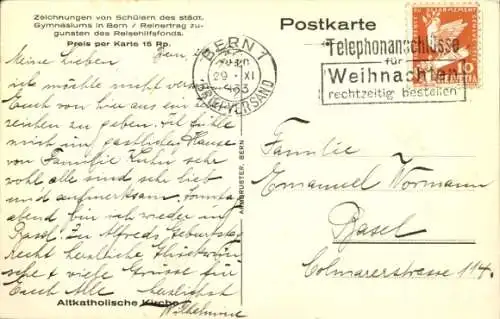 Zeichnungen von Schülern des städt.
Gymnasiums in Bern / Reinertrag zu-
gunsten des Reisehilfsfonds.
Preis per Karte 15 Rp.
Meine Lieben
Bern,
ich möchte nicht
Euch von hier aus ein
zeichen zu geben. Ich fühle
mich im gastlichen Hause
von Familie sehr
wohl alle sind sehr lieb
und aufmerksam. Sonntag
abend bin ich wieder in
Basel. Zu Alfreds Geburtstag
recht herzliche Glückwün-
sche & viele Grüsse für
Euch Alle herzlichst
Altkatholische Kirche
ARMBRUSTER, BERN
Postkarte
BERN 1
29. XI
BRIEFVERSAND
Telephonanschlüsse
für
Weihnachten
rechtzeitig bestellen
10
HELVETIA
Familie
Emanuel Wormann
Basel
Colmarerstrasse 114.